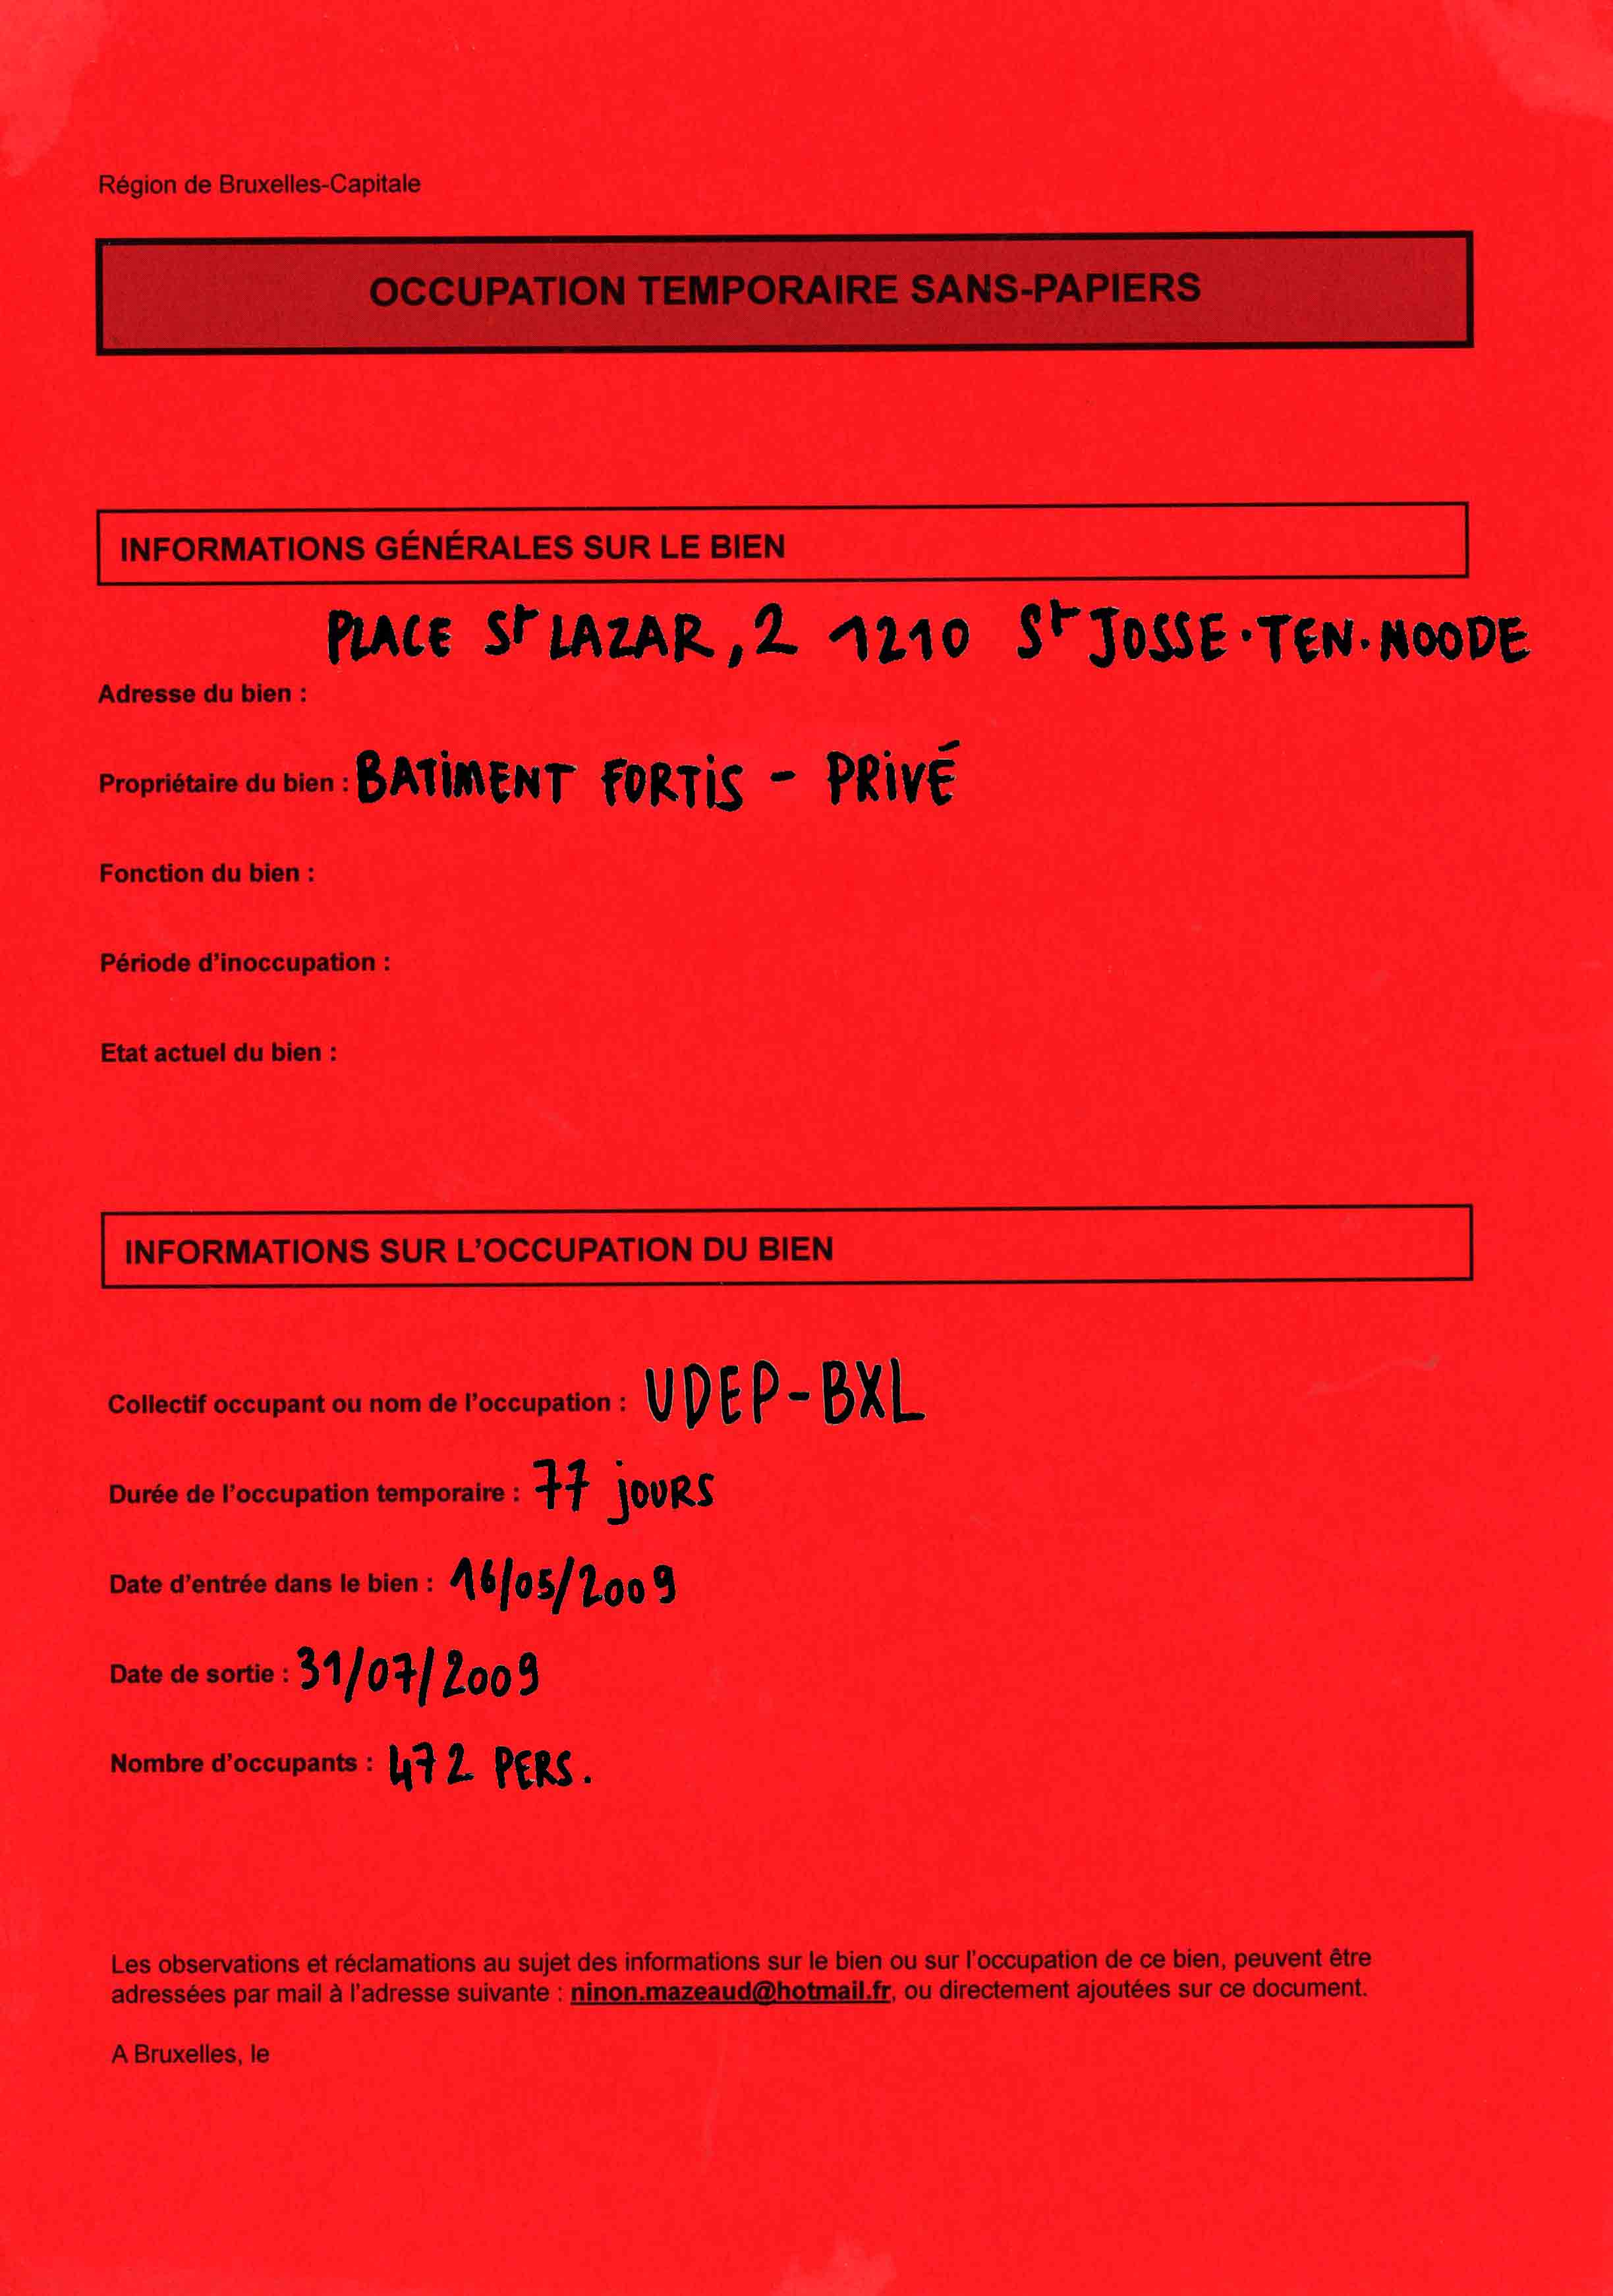 Région de Bruxelles-Capitale
OCCUPATION TEMPORAIRE SANS-PAPIERS
INFORMATIONS GÉNÉRALES SUR LE BIEN
PLACE St LAZAR, 2 1210 St JOSSE·TEN·NOODE
Adresse du bien :
Propriétaire du bien : BATIMENT FORTIS - PRIVÉ
Fonction du bien :
Période d'inoccupation :
Etat actuel du bien :
INFORMATIONS SUR L'OCCUPATION DU BIEN
Collectif occupant ou nom de l'occupation : UDEP-BXL
Durée de l'occupation temporaire : 77 jOURS
Date d'entrée dans le bien : 16/05/2009
Date de sortie : 31/07/2009
Nombre d'occupants : 472 PERS.
Les observations et réclamations au sujet des informations sur le bien ou sur l'occupation de ce bien, peuvent être
adressées par mail à l'adresse suivante : ninon.mazeaud@hotmail.fr, ou directement ajoutées sur ce document.
A Bruxelles, le